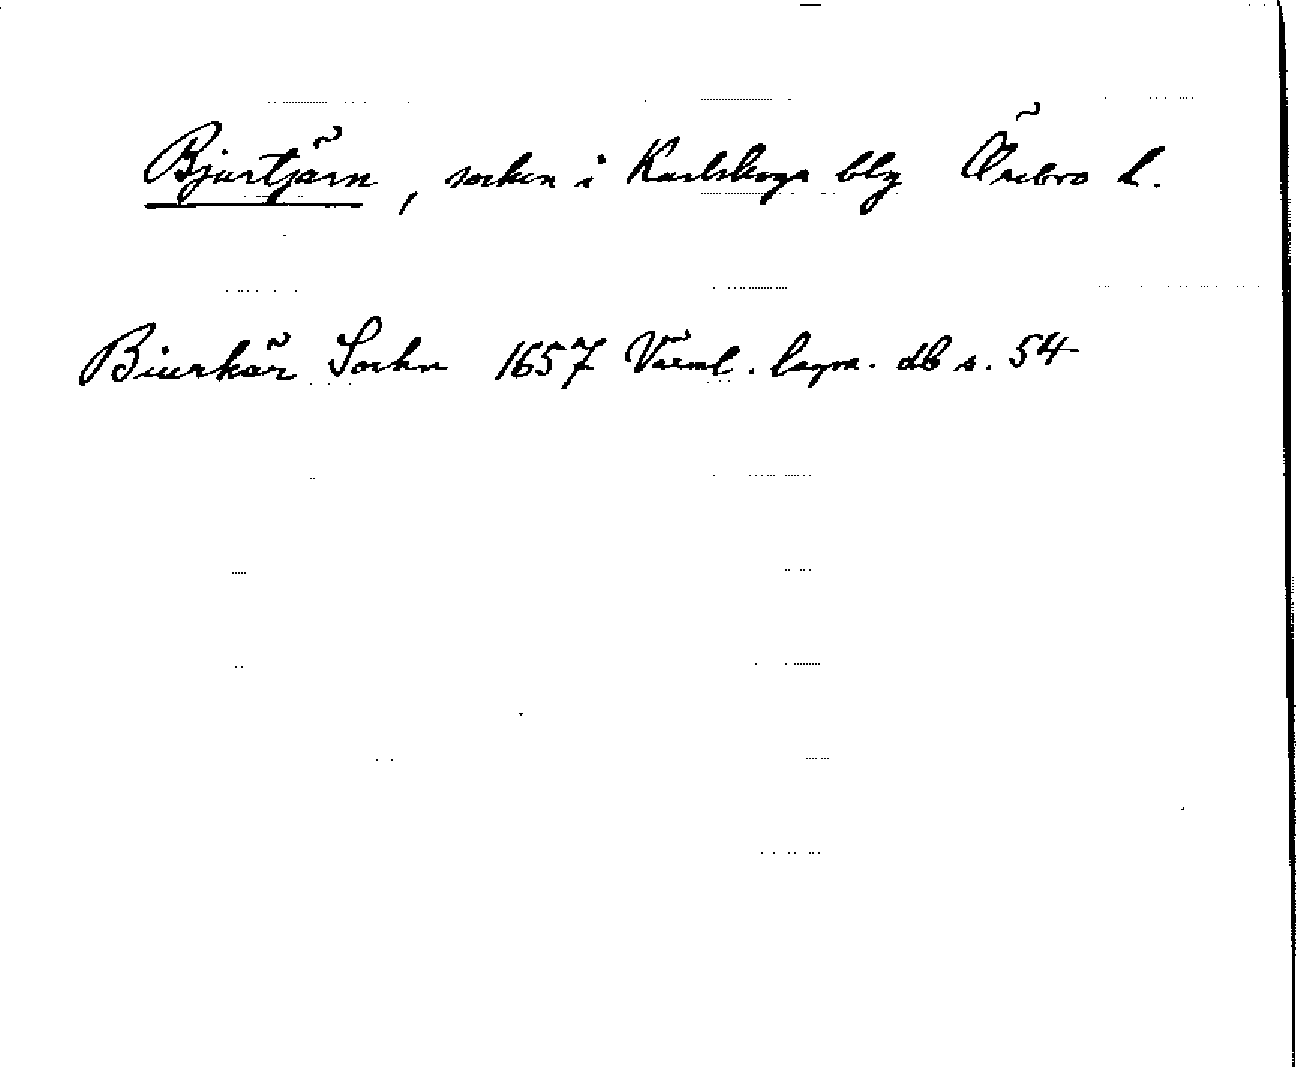 Bjurtjärn, socken i Karlskoga blg Örebro l.
Biurkär Sockn 1657 Värml. lagm. db s. 54